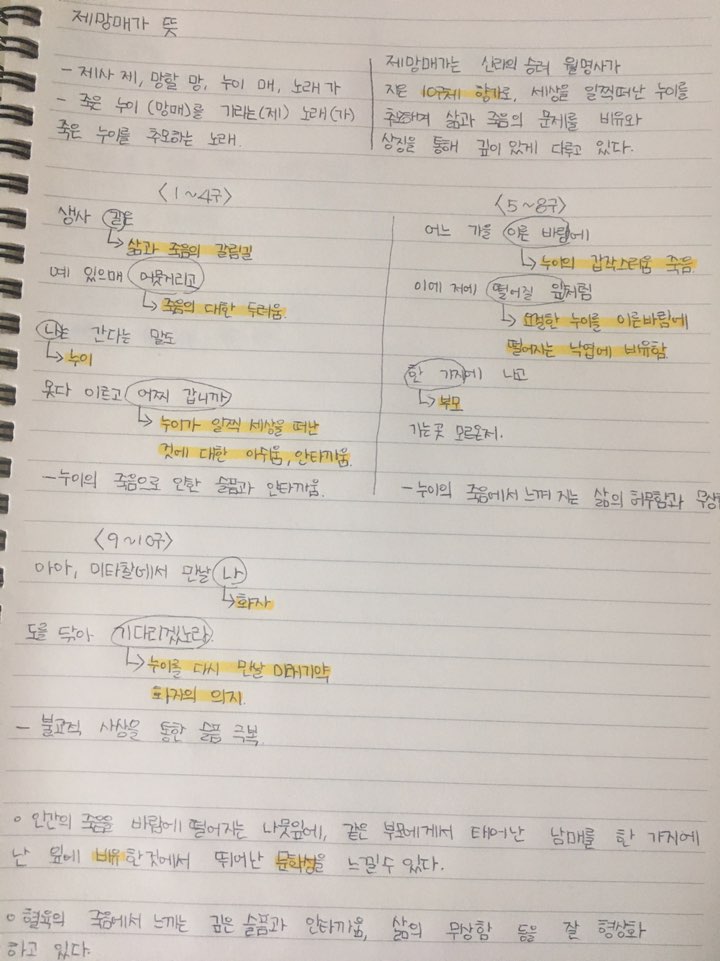 제망매가 뜻
- 제사 제, 망할 망, 누이 매, 노래 가
- 죽은 누이 (망매)를 기리는(제) 노래(가)
죽은 누이를 추모하는 노래.
제망매가는 신라의 승려 월명사가
지은 10구체 향가로, 세상을 일찍 떠난 누이를
추모하며 삶과 죽음의 문제를 비유와
상징을 통해 깊이 있게 다루고 있다.
<1~4구>
생사 길은
삶과 죽음의 갈림길
예 있으매 머뭇거리고
죽음의 대한 두려움
나는 간다는 말도
누이
못다 이르고 어찌 갑니까
누이가 일찍 세상을 떠난
것에 대한 아쉬움, 안타까움.
- 누이의 죽음으로 인한 슬픔과 안타까움.
<5~8구>
어느 가을 이른 바람에
누이의 갑작스러움 죽음
이에 저에 떨어질 잎처럼
요절한 누이를 이른바람에
떨어지는 낙엽에 비유함
한 가지에 나고
부모
가는 곳 모르온저.
- 누이의 죽음에서 느껴 지는 삶의 허무함과 무상
<9~10구>
아아, 미타찰에서 만날 나
화자
도를 닦아 기다리겠노라.
누이를 다시 만날 미래기약
화자의 의지.
- 불교적 사상을 통한 슬픔 극복
○ 인간의 죽음을 바람에 떨어지는 나뭇잎에, 같은 부모에게서 태어난 남매를 한 가지에
난 잎에 비유한것에서 뛰어난 문학성을 느낄수 있다.
○ 혈육의 죽음에서 느끼는 깊은 슬픔과 안타까움, 삶의 무상함 등을 잘 형상화
하고 있다.